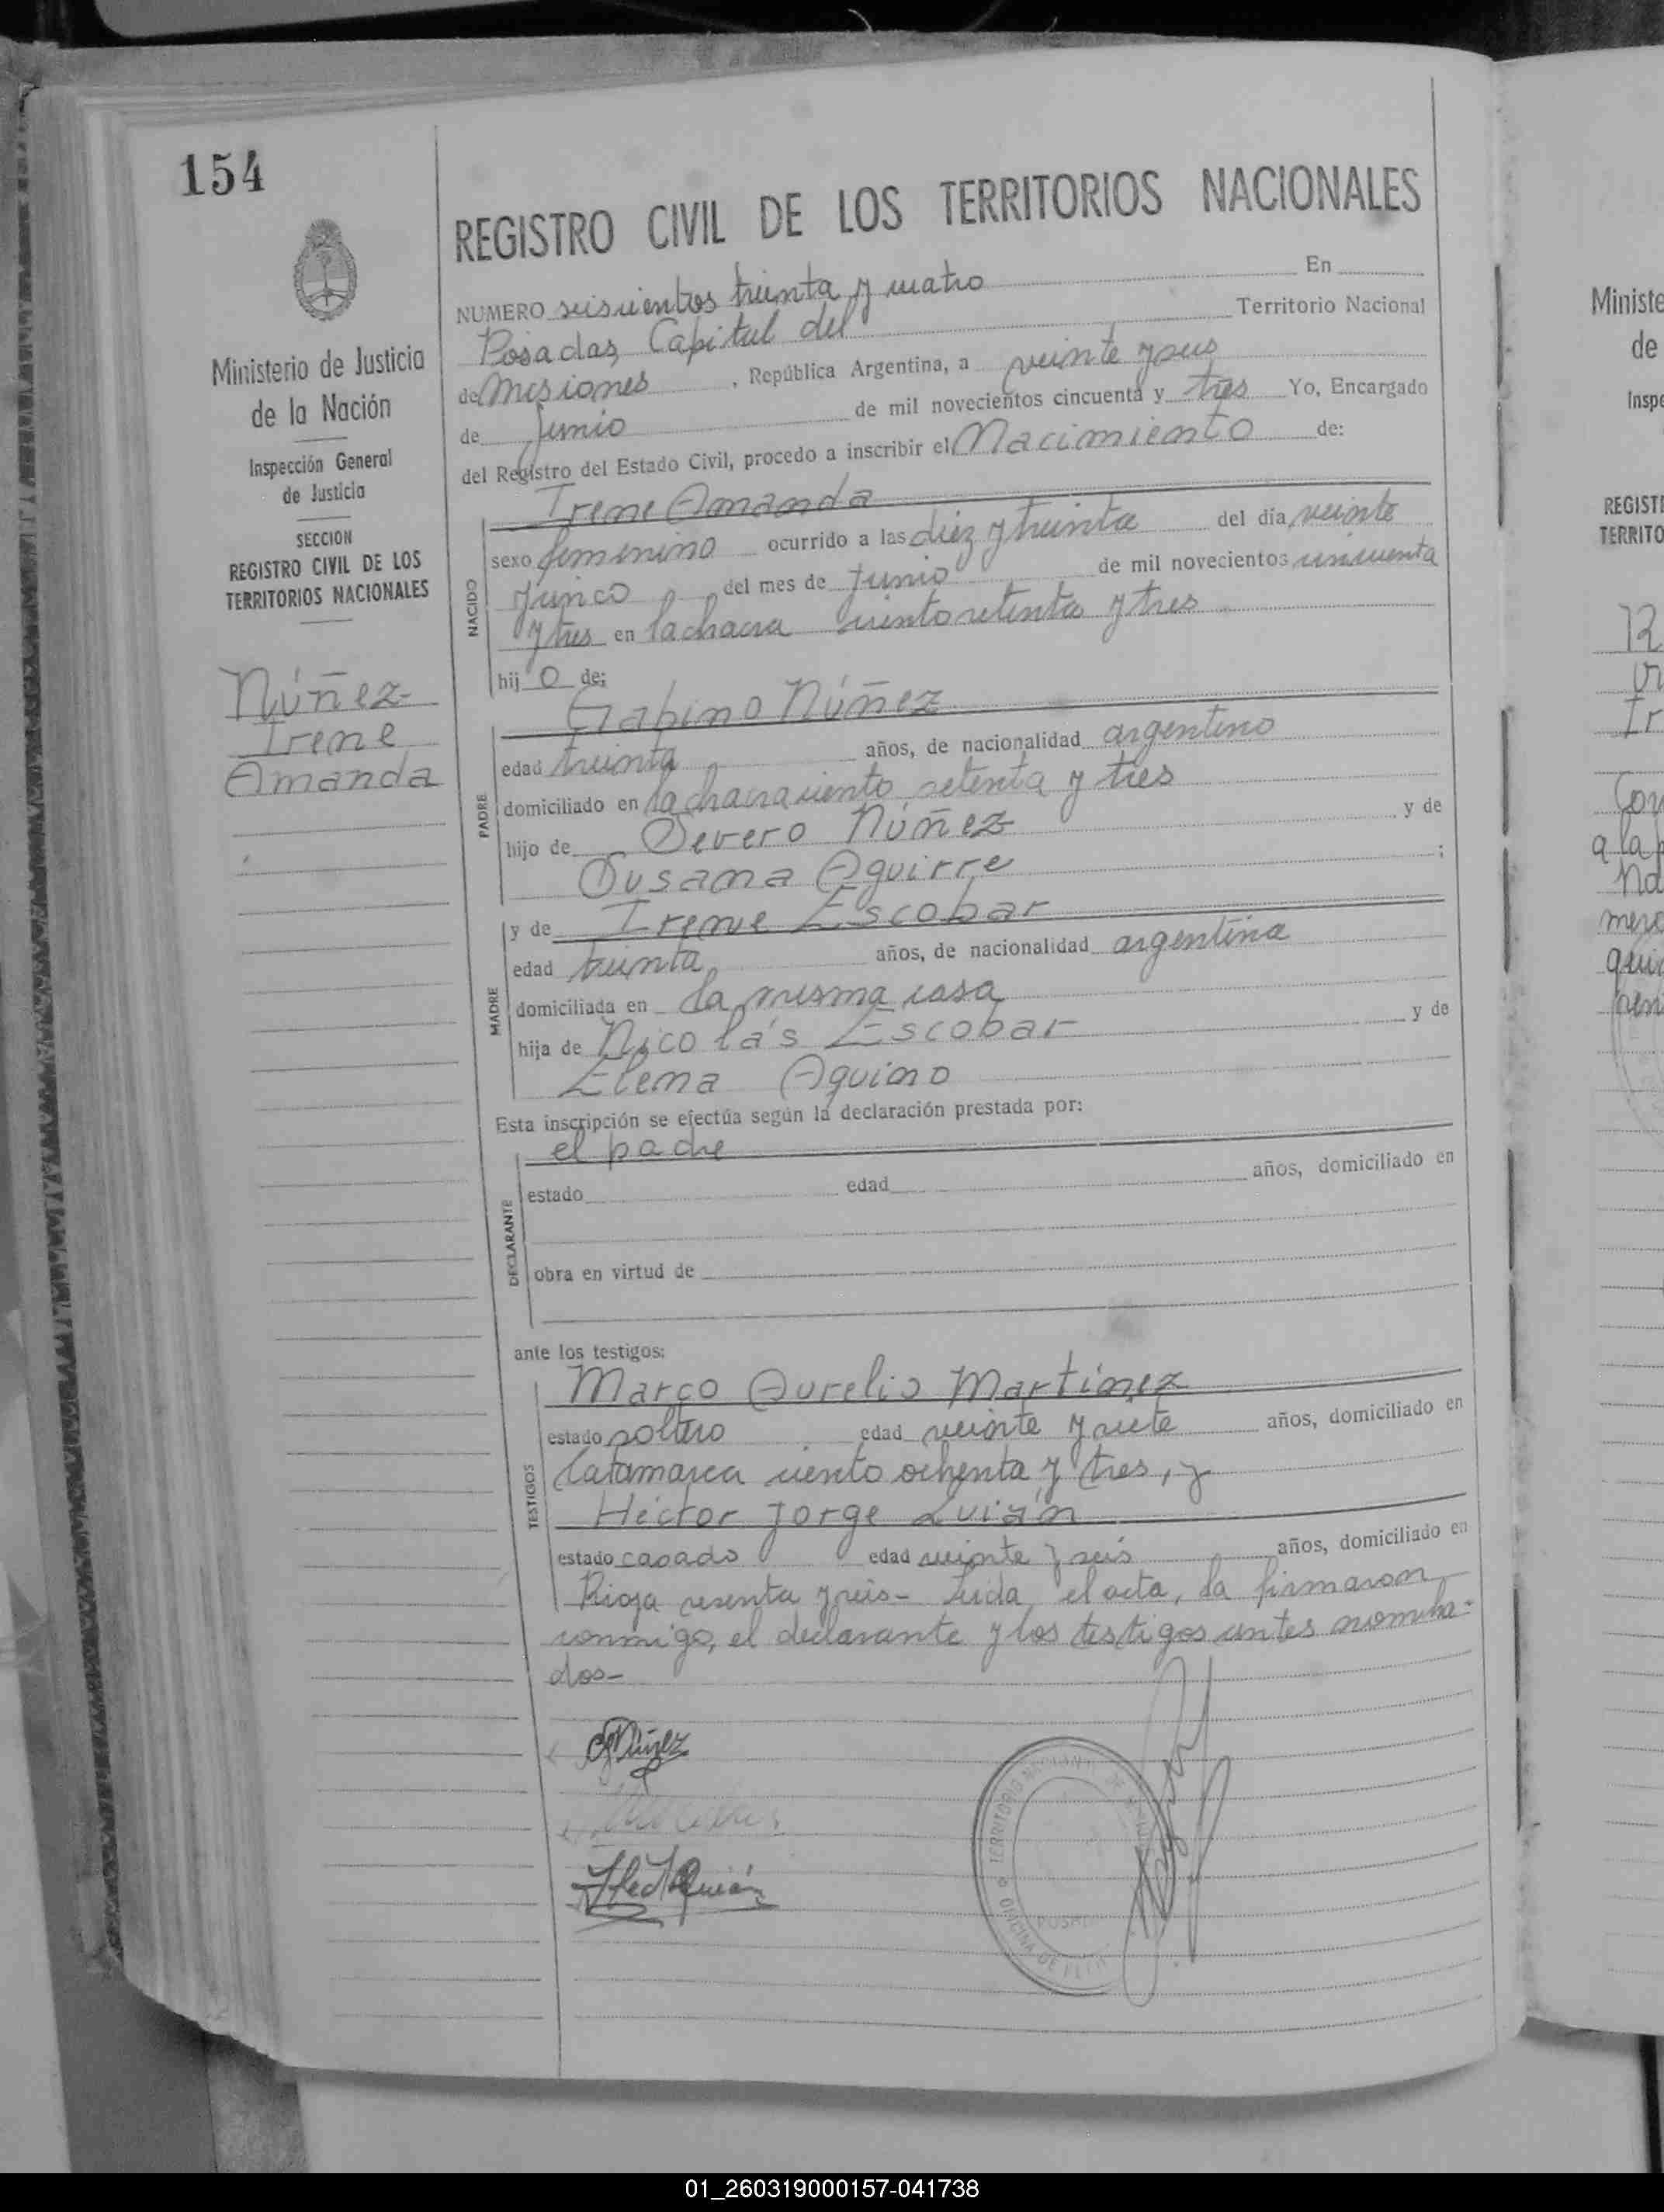 154
Ministerio de Justicia
de la Nación
Inspección General
de Justicia
SECCION
REGISTRO CIVIL DE LOS
TERRITORIOS NACIONALES
Núñez
Irene
Amanda
REGISTRO CIVIL DE LOS TERRITORIOS NACIONALES
NUMERO seiscientos treinta y cuatro En
Posadas, Capital del Territorio Nacional
de Misiones, República Argentina, a veinte y seis
de Junio de mil novecientos cincuenta y tres Yo, Encargado
del Registro del Estado Civil, procedo a inscribir el Nacimiento de:
Irene Amanda
NACIDO
sexo femenino ocurrido a las diez y treinta del día veinte
y cinco del mes de Junio de mil novecientos cincuenta
y tres en la chacra ciento setenta y tres
hij o de:
Gabino Núñez
PADRE
edad treinta años, de nacionalidad argentino
domiciliado en la chacra ciento setenta y tres
hijo de Severo Núñez y de
Susana Aguirre ;
y de Irene Escobar
MADRE
edad treinta años, de nacionalidad argentina
domiciliada en la misma casa
hija de Nicolás Escobar y de
Elena Aquino
Esta inscripción se efectúa según la declaración prestada por:
el padre
DECLARANTE
estado edad años, domiciliado en
obra en virtud de
ante los testigos:
Marco Aurelio Martínez
TESTIGOS
estado soltero edad veinte y siete años, domiciliado en
Catamarca ciento ochenta y tres, y
Héctor Jorge Luján
estado casado edad veinte y seis años, domiciliado en
Rioja sesenta y seis- Leida el acta, la firmaron
conmigo, el declarante y los testigos antes nombra=
dos-
G Núñez
TERRITORIO NACIONAL DE MISIONES
OFICINA DE
POSADAS
Ministe
de
Inspe
REGISTR
TERRITO
01_260319000157-041738